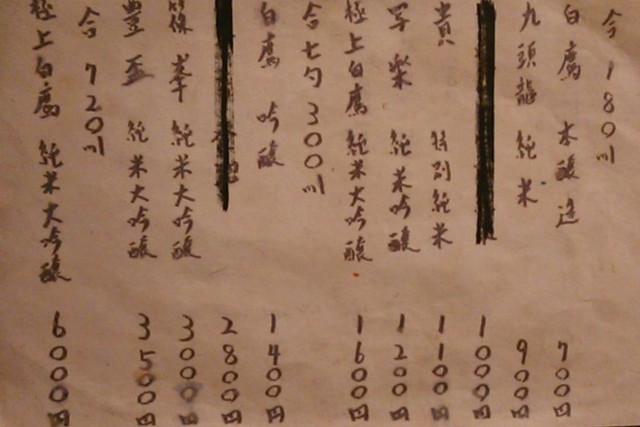 合 180ml
白鷹 本醸造 700円
九頭龍 純米 900円
1000円
貴 特別純米 1100円
写楽 純米吟醸 1200円
極上白鷹 純米大吟醸 1600円
合七勺 300ml
白鷹 吟醸 1400円
2800円
篠峯 純米大吟醸 3000円
豊盃 純米大吟醸 3500円
合 720ml
極上白鷹 純米大吟醸 6000円